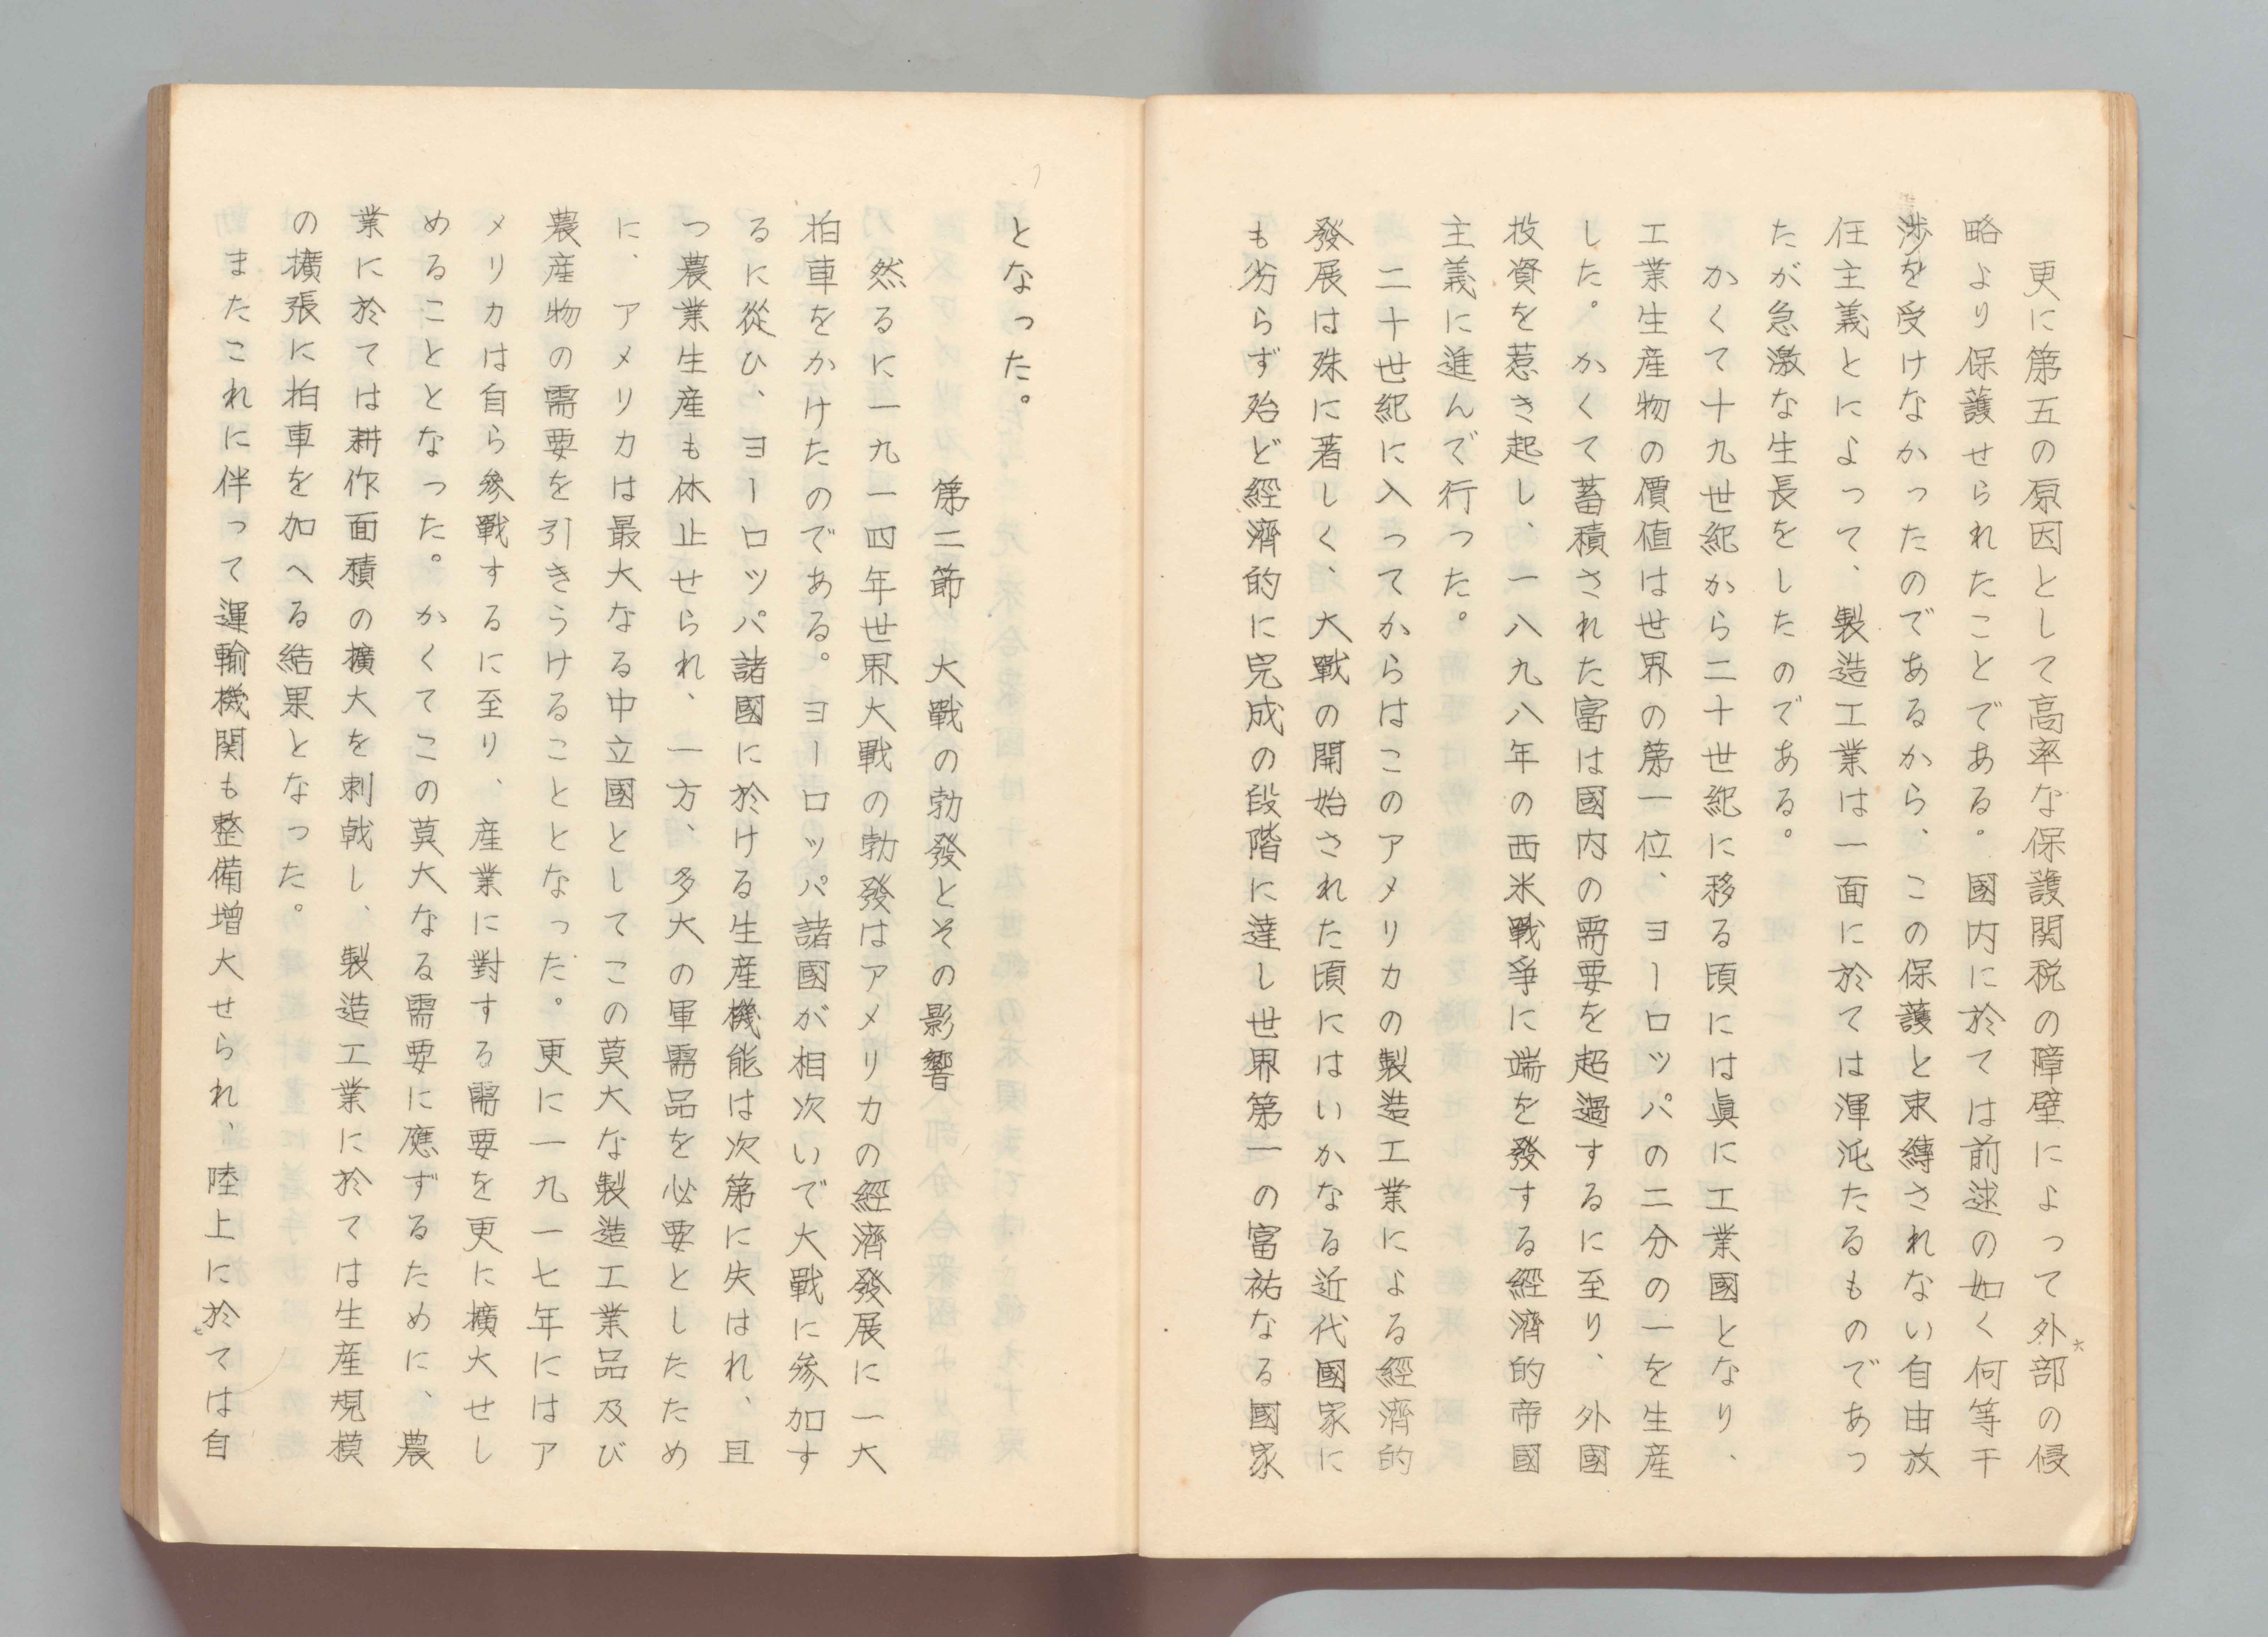 更に第五の原因として高率な保護関税の障壁によって外部の侵
略より保護せられたことである。國内に於ては前述の如く何等干
渉を受けなかったのであるから、この保護と束縛されない自由放
任主義とによって、製造工業は一面に於ては渾沌たるものであっ
たが急激な生長をしたのである。
かくて十九世紀から二十世紀に移る頃には眞に工業國となり、
工業生産物の價値は世界の第一位、ヨーロッパの二分の一を生産
した。かくて蓄積された富は國内の需要を超過するに至り、外國
投資を惹き起し、一八九八年の西米戰爭に端を發する經濟的帝國
主義に進んで行った。
二十世紀に入ってからはこのアメリカの製造工業による經濟的
發展は殊に著しく、大戰の開始された頃にはいかなる近代國家に
も劣らず殆ど經濟的に完成の段階に達し世界第一の富祐なる國家
となった。
第二節 大戰の勃發とその影響
然るに一九一四年世界大戰の勃發はアメリカの經濟發展に一大
拍車をかけたのである。ヨーロッパ諸國が相次いで大戰に參加す
るに從ひ、ヨーロッパ諸國に於ける生産機能は次第に失はれ、且
つ農業生産も休止せられ、一方、多大の軍需品を必要としたため
に、アメリカは最大なる中立國としてこの莫大な製造工業品及び
農産物の需要を引きうけることとなった。更に一九一七年にはア
メリカは自ら參戰するに至り、産業に對する需要を更に擴大せし
めることとなった。かくてこの莫大なる需要に應ずるために、農
業に於ては耕作面積の擴大を刺戟し、製造工業に於ては生産規模
の擴張に拍車を加へる結果となった。
またこれに伴って運輸機関も整備増大せられ、陸上に於ては自